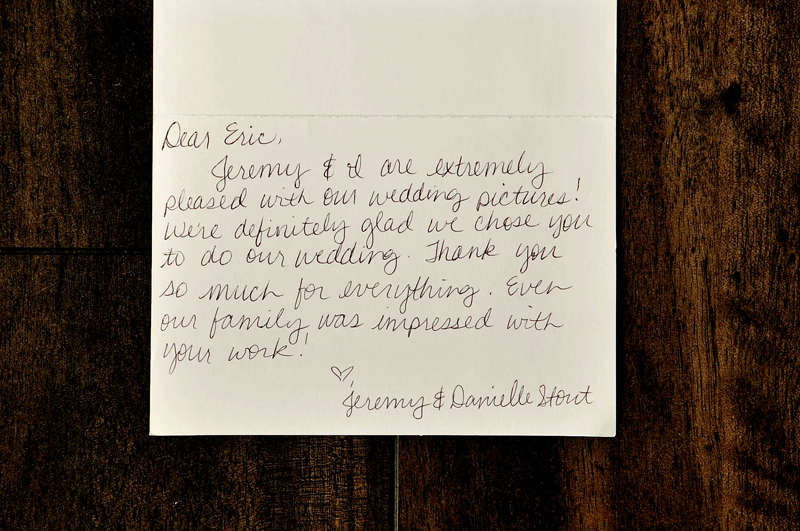 Dear Eric,
Jeremy & I are extremely
pleased with our wedding pictures!
We're definitely glad we chose you
to do our wedding. Thank you
so much for everything. Even
our family was impressed with
your work!
♡
Jeremy & Danielle Stout